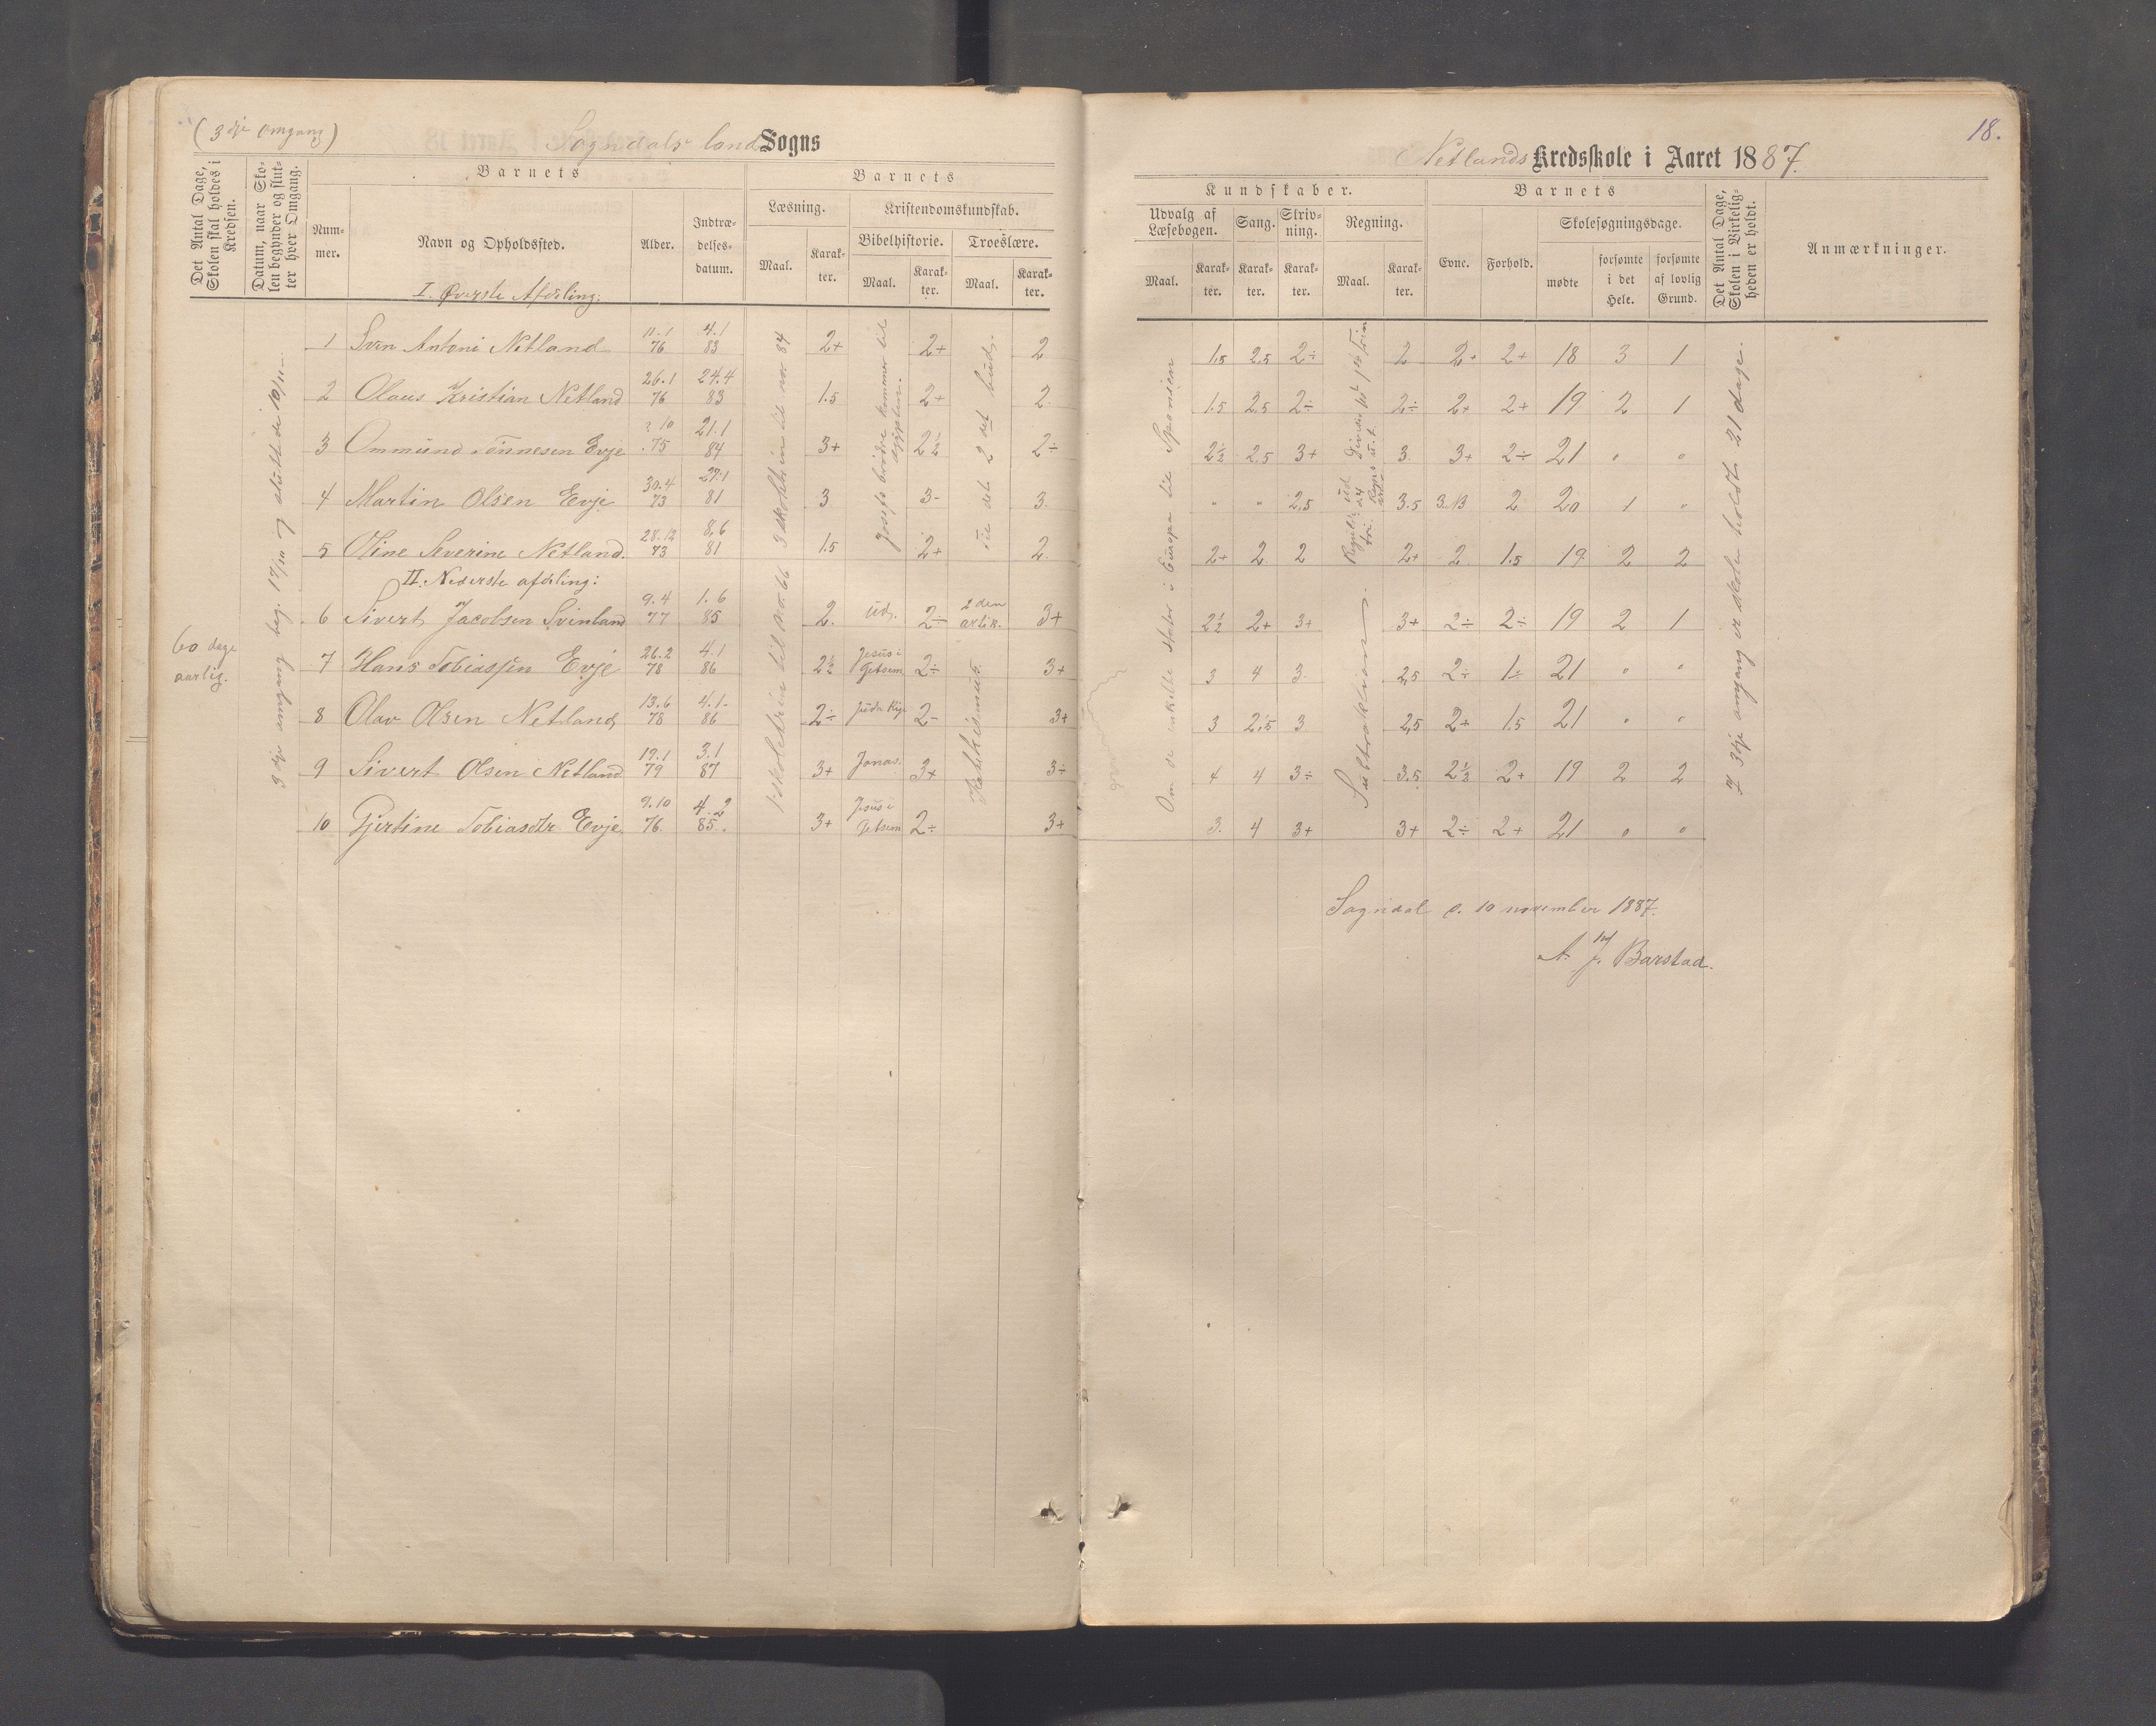 (3dje omgang)
Sogndals land Sogns
Det Antal Dage, Skolen skal holdes i Kredsen.
Datum, naar Skolen begynder og slutter hver Omgang.
Barnets
Nummer.
Navn og Opholdssted.
Alder.
Indtrædelsesdatum.
Barnets
Læsning.
Kristendomskundskab.
Bibelhistorie.
Troeslære.
Maal.
Karakter.
Maal.
Karakter.
Maal.
Karakter.
I. Øverste Afdeling:
1 Sven Antoni Netland 11.1 76 4.1 83 2+ 2+ 2
2 Olaus Kristian Netland 26.1 76 24.4 83 1.5 2+ 2.
3 Ommund Tønnesen Evje 2.10 75 21.1 84 3+ 2½ 2÷
4 Martin Olsen Evje 30.4 73 27.1 81 3 3- 3.
5 Oline Severine Netland. 28.12 73 8.6 81 1.5 2+ 2.
II. Nederste afdeling:
6 Sivert Jacobsen Svinland 9.4 77 1.6 85 2. ud. 2÷ 2den artik. 3+
7 Hans Tobiassen Evje 26.2 78 4.1 86 2½ Jesus i Getsem 2÷ 3+
8 Olav Olsen Netland 13.6 78 4.1- 86 2÷ Juda Rig. 2- 3+
9 Sivert Olsen Netland 19.1 79 3.1 87 3+ Jonas. 3+ 3÷
10 Gjertine Tobiasdtr Evje 9.10 76. 4.2 85. 3+ Jesus i Getsem 2÷ 3+
60 dage aarlig.
3dje omgang beg. 17/10 og sluttede 10/11-
til no. 84
til no. 66
Josefs brødre kommer til Ægypten.
det 2det bud.
Katekismus.
18.
Netlands Kredsskole i Aaret 1887.
Kundskaber.
Udvalg af Læsebogen.
Sang.
Skrivning.
Regning.
Maal.
Karakter.
Karakter.
Karakter.
Maal.
Karakter.
Barnets
Evne.
Forhold.
Skolesøgningsdage.
mødte
forsømte i det Hele.
forsømte af lovlig Grund.
Det Antal Dage, Skolen i Virkeligheden er holdt.
Anmærkninger.
1.5 2.5 2÷ 2 2+ 2+ 18 3 1
1.5 2.5 2÷ 2÷ 2+ 2+ 19 2 1
2½ 2.5 3+ 3. 3+ 2÷ 21 " "
" " 2.5 3.5 3.N3 2 20 1 "
2+ 2. 2 2+ 2. 1.5 19 2 2
2½ 2+ 3+ 3+ 2÷ 2÷ 19 2 1
3 4 3. 2,5 2÷ 1÷ 21 " "
3 2,5 3 2,5 2+ 1.5 21 " "
4 4 3÷ 3.5 2½ 2+ 19 2 2
3. 4 3+ 3+ 2÷ 2+ 21 " "
Om de enkelte stater i Europa til Spanien
Subtraktion.
I 3dje omgang er skole holdt 21 dage.
Sogndal d. 10 november 1887.
A. J. Barstad.